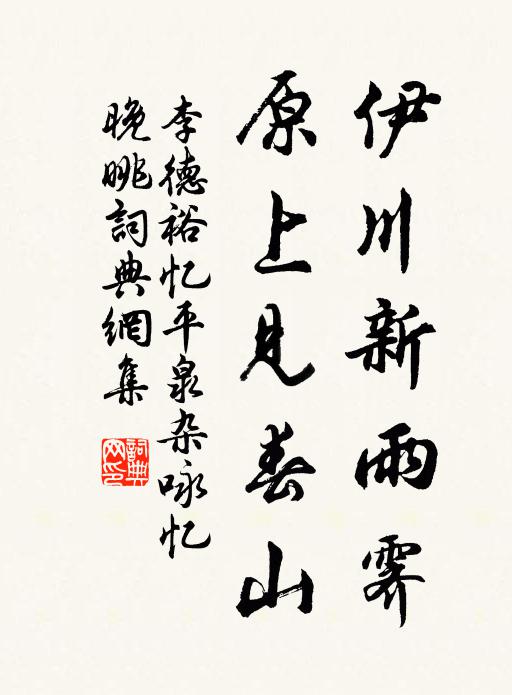 伊川新雨霽
原上見春山
李德裕忆平泉杂咏忆
晚眺詞典網集
詞典
网印